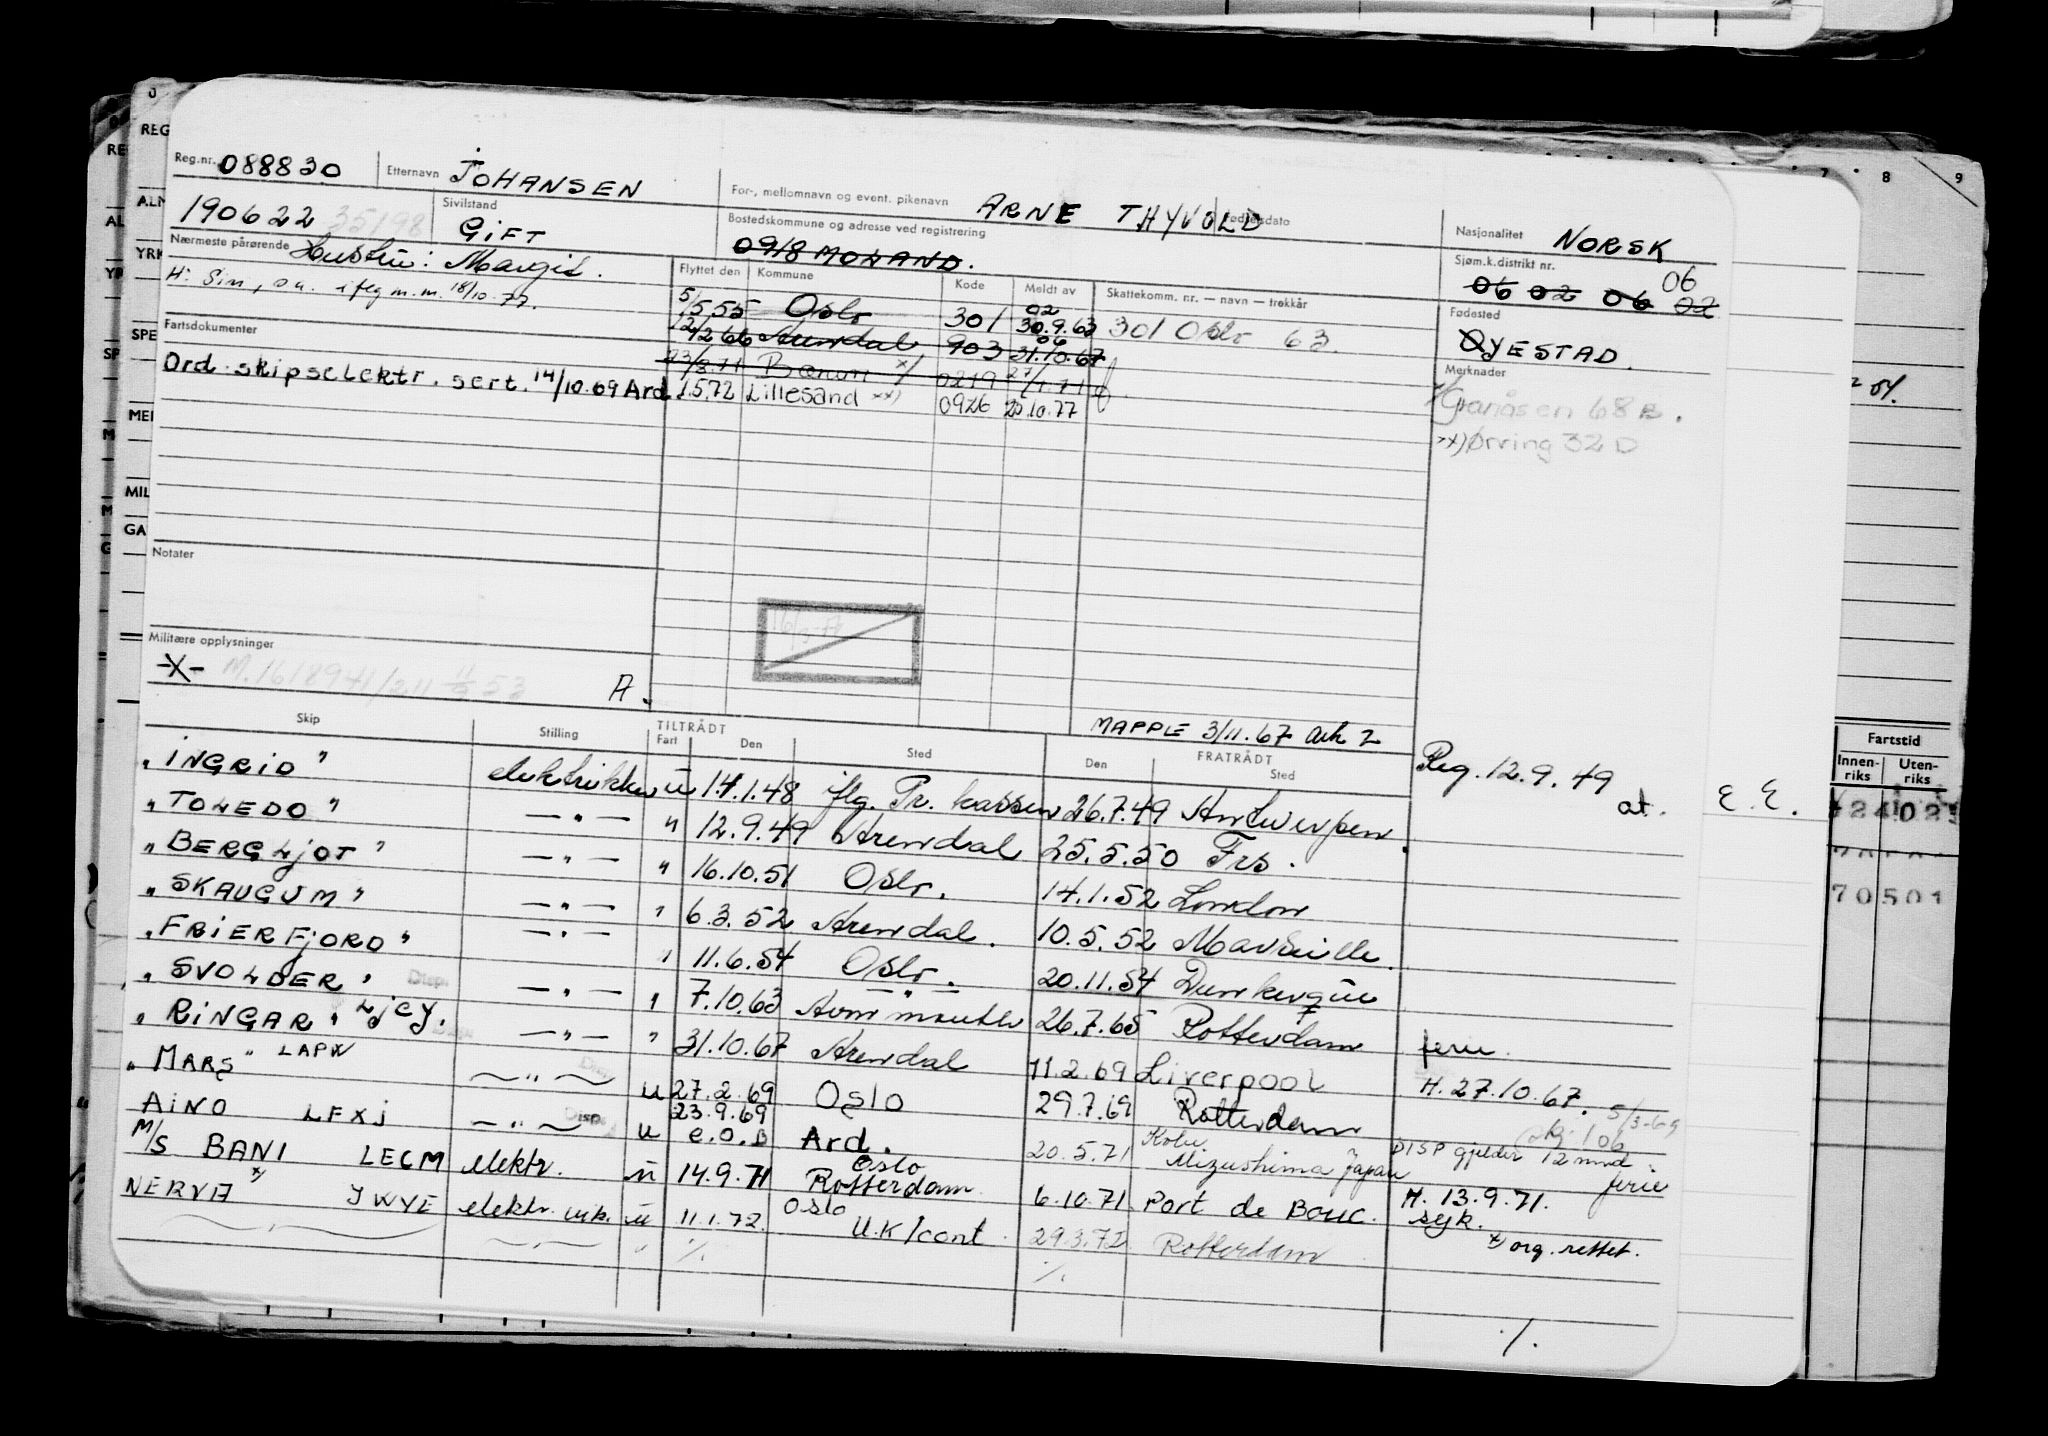 Reg.nr. 088830 Etternavn JOHANSEN For-, mellomnavn og event. pikenavn ARNE THYVOLD Fødselsdato Nasjonalitet NORSK
190622 35198 Sivilstand GIFT Bostedskommune og adresse ved registrering 0918 MOLAND. Sjøm.k.distrikt nr. 06 02 06 02 06
Nærmeste pårørende Hustru: Margit. Flyttet den Kommune Kode Meldt av Skattekomm. nr. — navn — trekkår Fødested ØYESTAD.
H: Sin, s.a. iflg m.m. 18/10.77.
5/5 55 Oslo 301 02 30.9.63 301 Oslo 63.
12/2 66 Arendal 903 06 31.10.67
Fartsdokumenter
Bærum x) 0219
Ord. skipselektr. sert. 14/10.69 Ard. 1.5.72 Lillesand xx) 0926 25.10.77
Merknader
Granåsen 68 B.
xx) Ørving 32 D
Notater
Militære opplysninger
-X- A.
MAPPE 3/11.67 Ark 2
Skip Stilling TILTRÅDT Fart Den Sted FRATRÅDT Den Sted
"INGRID" elektriker u 14.1.48 iflg. Tr. kassen 26.7.49 Antwerpen Reg. 12.9.49 at. E.E.
"TOLEDO" — " — " 12.9.49 Arendal 25.5.50 Frs.
"BERGLJOT" — " — " 16.10.51 Oslo. 14.1.52 London
"SKAUGUM" — " — " 6.3.52 Arendal. 10.5.52 Marseille.
"FRIERFJORD" — " — " 11.6.54 Oslo. 20.11.54 Dunkerque
"SVOLDER" Disp. — " — " 7.10.63 Avonmouth 26.7.65 Rotterdam ferie.
"RINGAR" LJCY. — " — " 31.10.67 Arendal 11.2.69 Liverpool H. 27.10.67.
"MARS" LAPW — " — u 27.2.69 Oslo 29.7.69 Rotterdam 5/3-69
AINO LFXJ — " — Disp. u 23.9.69 e.o.B Ard. 20.5.71 Kobe Mizushima Japan DISP gjelder 12 mnd. ferie
M/S BANI LECM elektr. u 14.9.71 Oslo Rotterdam 6.10.71 Port de Bouc. H. 13.9.71. syk.
NERVA x) JWYE elektr. u 11.1.72 Oslo U.K/cont 29.3.72 Rotterdam x) org. rettet.
" %. %.
%.
Fartstid
Innen- Uten-
riks riks
70501
REG
YRK
SPE
MIL
GA
7 8 9